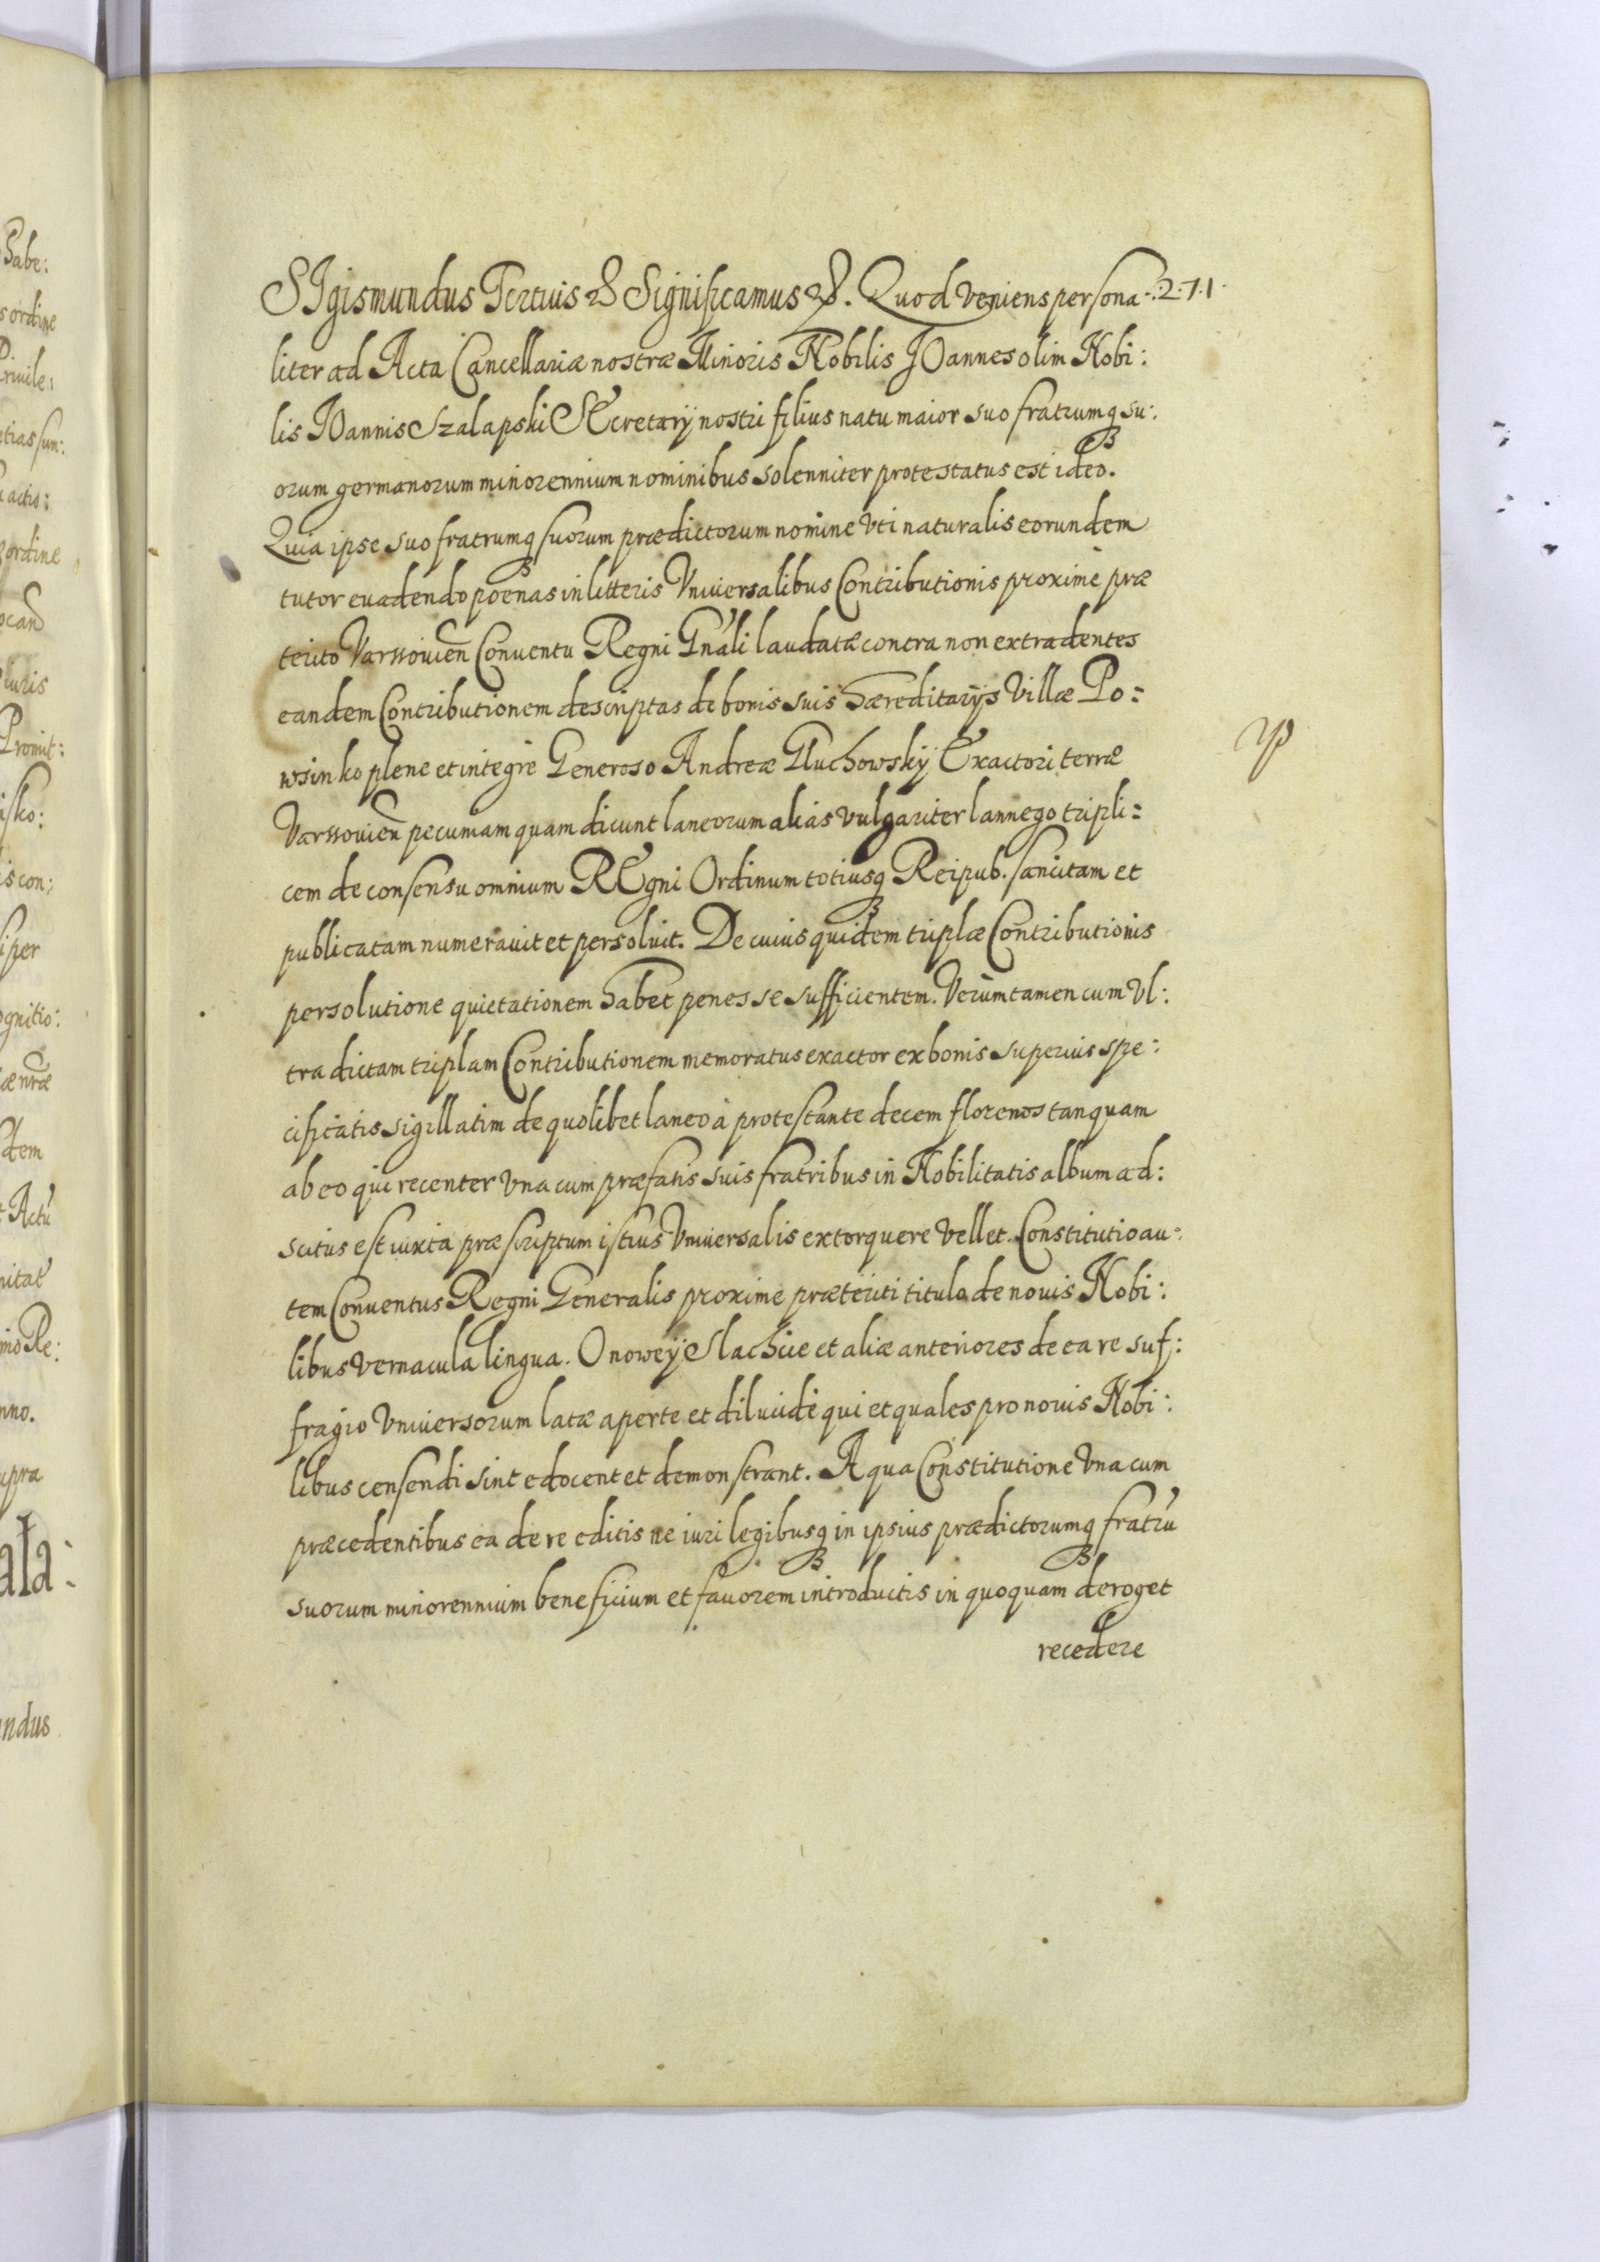 SIgismundus Tertius &c Significamus &c. Quod veniens persona-
.2.7.1.
liter ad Acta Cancellariæ nostræ Minoris Nobilis JOannes olim Nobi:
lis JOannis Szalapski SEcretarÿ nostri filius natu maior suo fratrumq su:
orum germanorum minorennium nominibus solenniter protestatus est ideo.
Quia ipse suo fratrumq suorum prædictorum nomine vti naturalis eorundem
tutor euadendo poenas in litteris Vniuersalibus Contributionis proximè præ
terito Varssouien Conuentu Regni Gnali laudatæ contra non extradentes
eandem Contributionem descriptas de bonis suis hæreditarÿs Villæ Po=
wsinko plene et integrè Generoso Andreæ Gluchowskÿ Exactori terræ
Varssouien pecuniam quam dicunt laneorum alias vulgariter lannego tripli=
cem de consensu omnium REgni Ordinum totiusq Reipub. sancitam et
publicatam numerauit et persoluit. De cuius quidem triplæ Contributionis
persolutione quietationem habet penes se sufficientem. Verùmtamen cum Vl:
tra dictam triplam Contributionem memoratus exactor ex bonis superius spe:
cificatis sigillatim de quolibet laneo à protestante decem florenos tanquam
ab eo qui recenter vna cum præfatis suis fratribus in Nobilitatis album ad:
scitus est iuxta præscriptum istius Vniuersalis extorquere vellet. Constitutio au=
tem Conuentus Regni Generalis proximè præteriti titulo de nouis Nobi:
libus vernacula lingua. O nowey Slachcie et aliæ anteriores de ea re suf:
fragio Vniuersorum latæ aperte et dilucidè qui et quales pro nouis Nobi:
libus censendi sint edocent et demonstrant. A qua Constitutione vna cum
præcedentibus ea de re editis ne iuri legibusq in ipsius prædictorumq fratrū
suorum minorennium beneficium et fauorem introductis in quoquam deroget
recedere